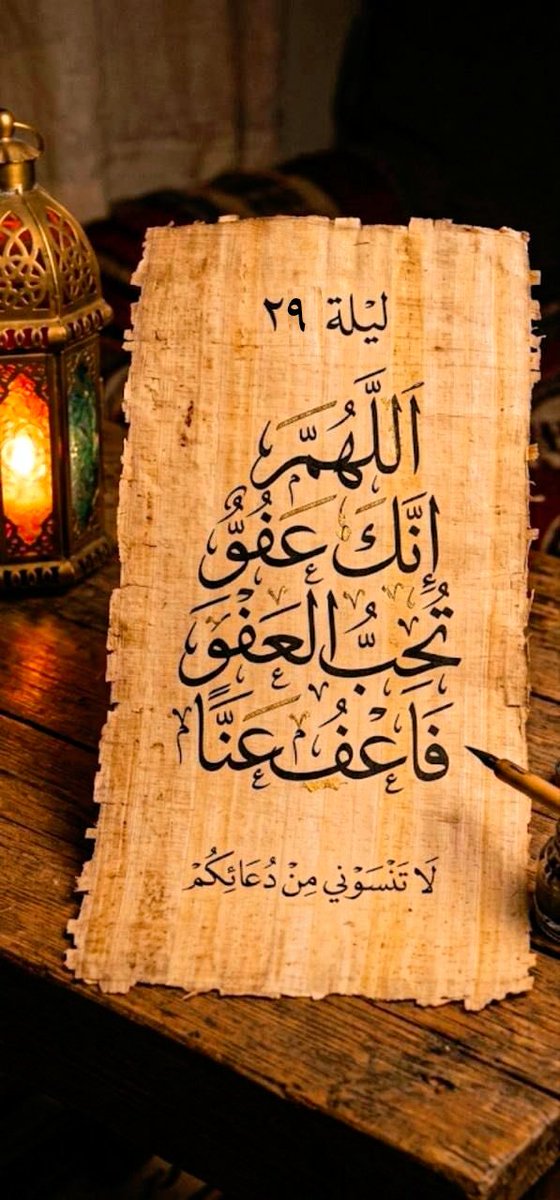 ليلة ٢٩
اَللَّهُمَّ
إِنَّكَ عَفُوٌّ
تُحِبُّ العَفْوَ
فَاعْفُ عَنَّا
لَا تَنْسَوْنِي مِنْ دُعَائِكُمْ